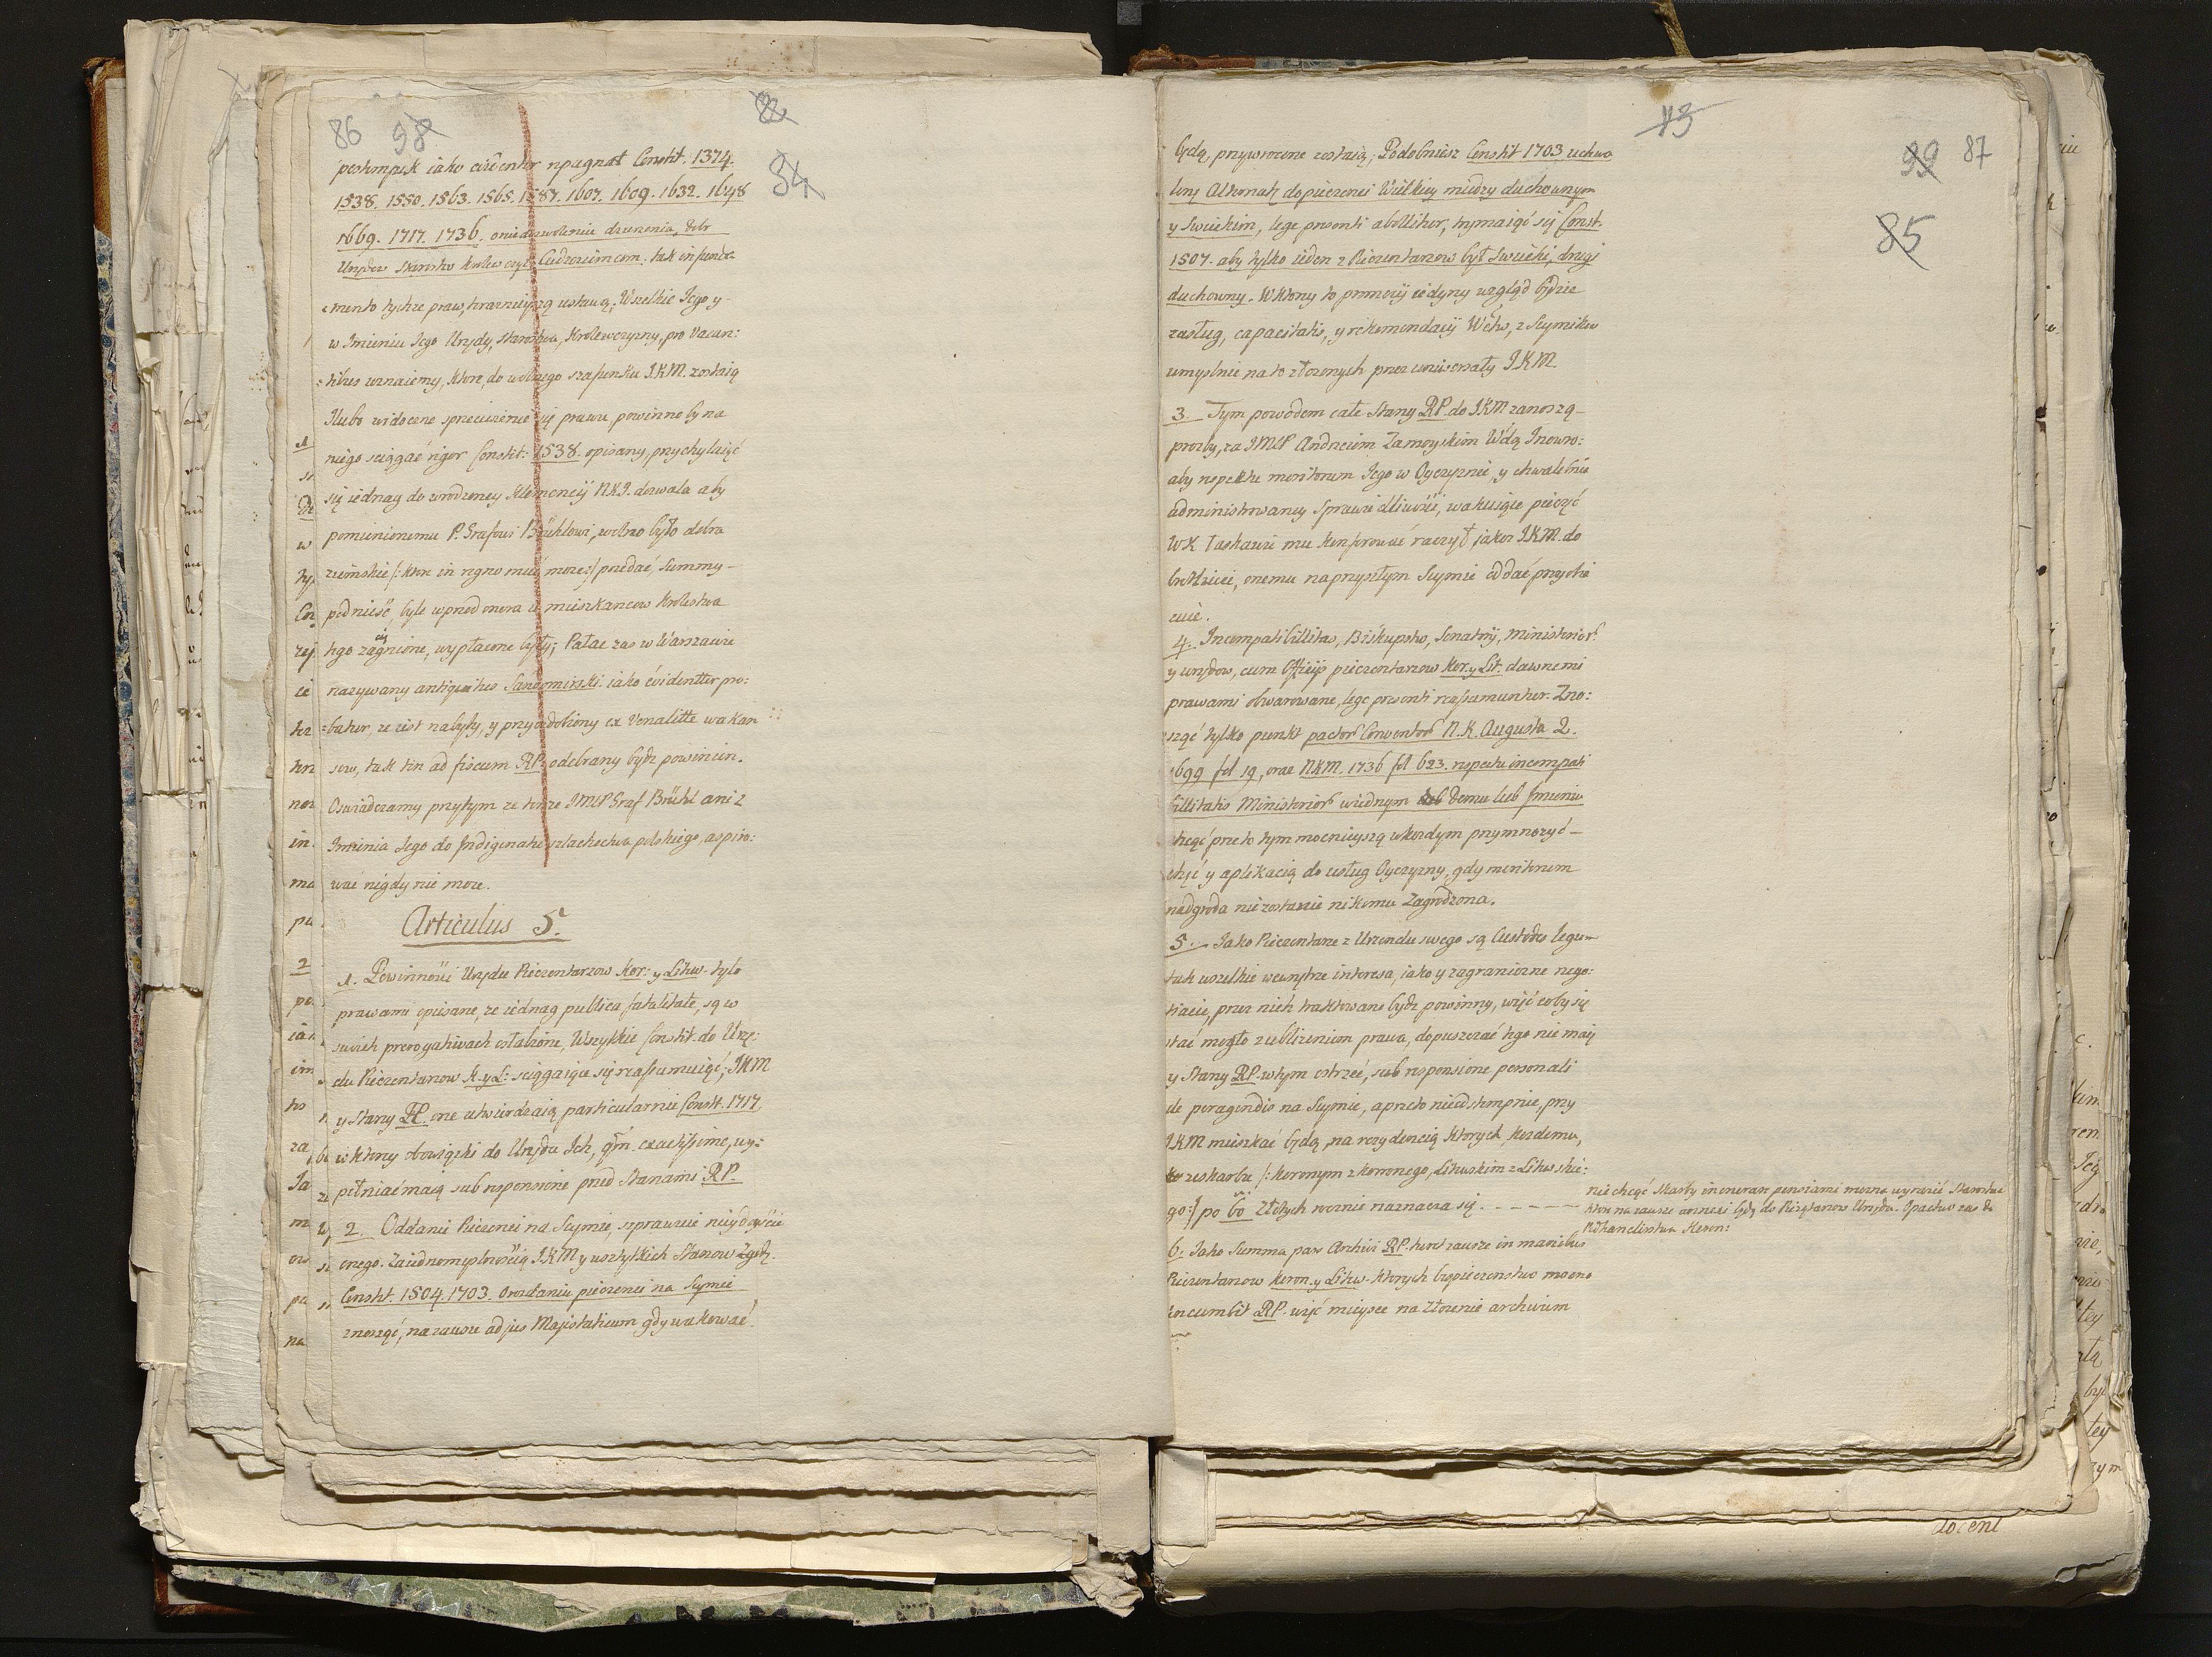 86 98 22
84
postempek iako evidenter repugnat Constit. 1374.
1538. 1550. 1563. 1565. 1587. 1607. 1609. 1632. 1648
1669. 1717. 1736. o niedozwoleniu dzierzenia, dobr
Urzędow Starostw Krolewczyzn Cudzoziemcom. tak in funda
mento tychze praw, teraznieyszą ustawą; Wszelkie Jego y
w Imieniu Jego Urzędy, Starostwa, Krolewczyzny, pro Vacan:
tibus uznaiemy, ktore, do wolnego szafunku J.K.M. zostaią
I lubo widoczne sprzeciwienie się prawu, powinno by na
niego sciągać rigor Constit: 1538. opisany, przychylaiąc
się iednag do wrodzoney Klemencyi N.K.J. dozwala aby
pomienionemu P. Grafowi Brühlowi, wolno było dobra
ziemskie /: ktore in regno mieć moze :/ przedać, Summy
podnieść, byle wprzod onera z mieszkancow Krolestwa
tego zaciągnione, wypłacone były; Pałac zas w Warszawie
nazywany antiquitus Sandomirski. iako evidenter pro:
batur, ze iest nabyty, y przyozdobiony ex Venalitte wakan
sow, tak ten ad fiscum RP. odebrany bydz powinien.
Oswiadczamy przytym ze tenze JMP Graf Brühl ani z
Imienia Jego do Indigenatu szlachectwa polskiego, aspiro:
wać nigdy nie moze.
Articulus 5.
1. Powinności Urzędu Pieczentarzow Kor: y Litew. tylo
prawami opisane, ze iednag publica fatalitate, są w
swoich prerogatiwach osłabione, Wszystkie Constit. do Urzę:
du Pieczentarzow K. y L: sciągaiące się reassumuiąc; JKM
y Stany RP. one utwierdzaią particularnie Constt. 1717
w ktorey obowiąski do Urzędu Ich, exactissime, wy:
pełniać maią sub responsione przed Stanami RP.
2. Oddanie Pieczenci na Seymie, szprawuie
onego. Za iednomyślnością J.K.M y wszystkich Stanow Zgodą.
Constit. 1504. 1703. o rozdaniu pieczenci na Seymie
znosząc, na zawsze ad jus Majistaticum gdy wakować
13
99 87
85
będą przywrocone zostaią; Podobniesz Constit 1703 uchwa
loną Alternatę do pieczenci Wielkiey między duchownym
y Swieckim, lege presenti abolitur, trzymaiąc się Const.
1507. aby tylko ieden z Pieczentarzow był Swiecki, drugi
duchowny. W ktorey to promocii iedyny wzgląd będzie
zasług, capacitatis, y rekomendacii Wdztw, z Seymikow
umyslnie na to złozonych przez uniwersały J.K.M.
3. Tym powodem całe Stany RP. do J.K.M zanoszą
prozby, za JMP Andrzeiem Zamoyskim Wdą Inowro:
aby respektu meritorum Jego w Oyczyznie, y chwalebnie
administrowaney sprawiedliwości, wakuiące pieczęć
W.K łaskawie mu konferować raczył jakoz J.K.M. do
brotliwie, onemu na przyszłym Seymie oddać przyobie
cuie.
4. Incompatibilitas, Biskupstw, Senatorij, Ministerior
y urzędow, cum Officijs pieczentarzow Kor. y Lit. dawnemi
prawami obwarowane, lege presenti reassumuntur. Zno:
sząc tylko punkt pactor Conventor N.K. Augusta 2.
1699 fol 19, oraz N.K.M. 1736 fol 623. respectu incompati
billitatis Ministerior w iednym Domu lub Imieniu
chcąc przeto tym mocnieyszą w kozdym przymnozyć
chęć y aplikacią do usług Oyczyzny, gdy meritorum
nadgroda nie zostanie nikomu Zagrodzona.
5. Jako Pieczentarze z Urzendu swego są Custodes legum
tak wszelkie wewnętrze interesa, jako y zagraniczne nego:
tiacie, przez nich traktowane bydz powinny, więc coby się
stać mogło z ubliżeniem prawa, dopuszczać tego nie maią
y Stany RP. w tym ostrzec, sub responsione personali
de peragendis na Seymie, a przeto nieodstempnie, przy
J.K.M mieszkać będą, na rezydencią ktorych, kozdemu,
ze skarbu /: koronym z koronego, Litewskim z Litewskie:
go :/ po 60 złotych rocznie naznacza się. - - - - -
nie chcąc Skarby in onerare pensiami mozna wyrazić Starostwa
ktore na zawsze annexi będą do Pieczętarzow Urzędu. Opactwo zas do
Podkanclerstwa Koron:
6. Jako Summa paw Archivi RP. tkwi zawsze in manibus
Pieczentarzow Koron. y Litew. ktorych bespieczenstwo mocno
incumbit RP. więc mieysce na złozenie archivum